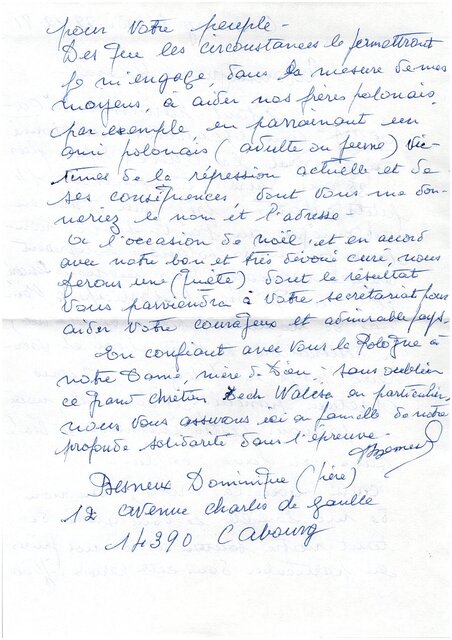 pour votre peuple -
Dès que les circonstances le permettront
je m'engage, dans la mesure de mes
moyens, à aider nos frères polonais,
par exemple, en parrainant un
ami polonais (adulte ou jeune) vic-
times de la répression actuelle et de
ses conséquences, dont vous me don-
neriez le nom et l'adresse
A l'occasion de noël, et en accord
avec notre bon et très dévoué curé, nous
ferons une (quête) dont le résultat
vous parviendra à votre secrétariat pour
aider votre courageux et admirable pays.
En confiant avec vous la Pologne à
notre Dame, mère de Dieu, sans oublier
ce grand chrétien Lech Walesa en particulier,
nous vous assurons ici en famille de notre
profonde solidarité dans l'épreuve.
Besneux Dominique (père)
12 avenue charles de gaulle
14390 Cabourg